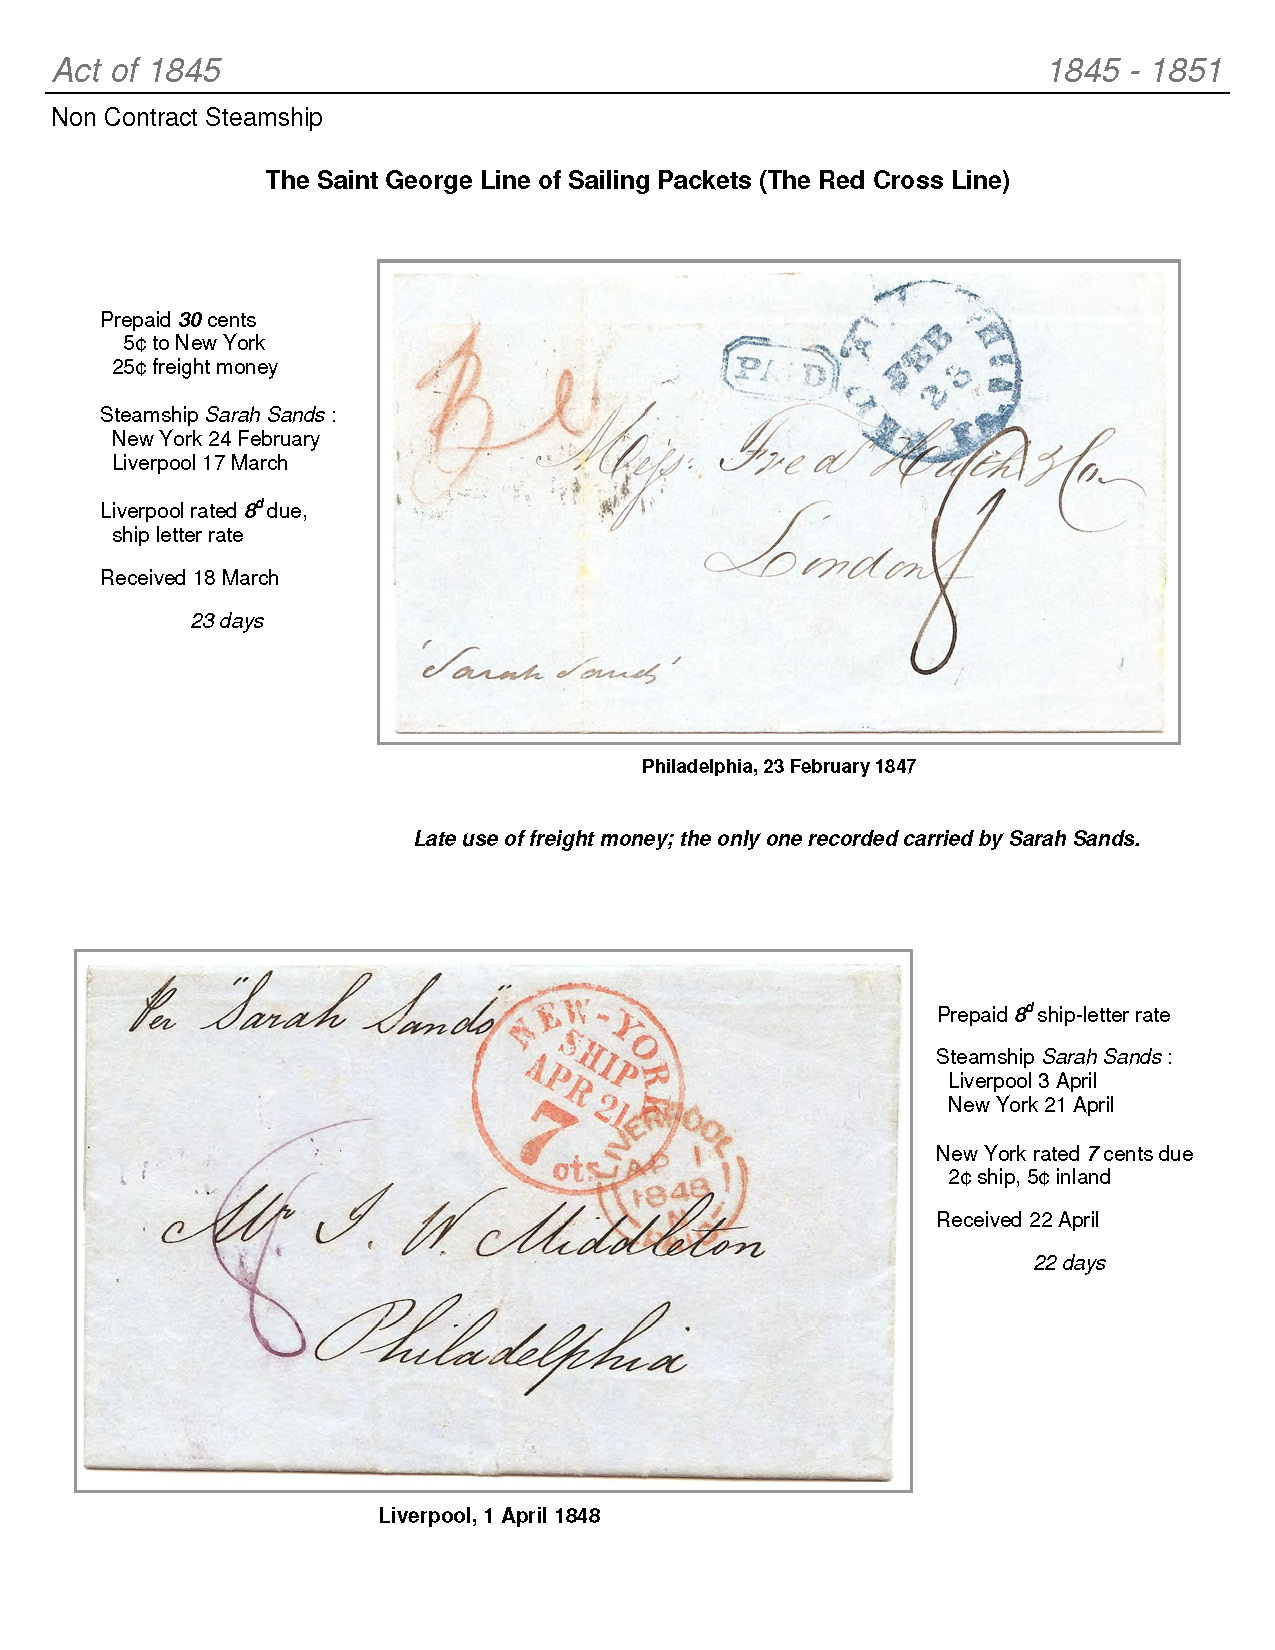 Act of 1845
1845 - 1851
Non Contract Steamship
The Saint George Line of Sailing Packets (The Red Cross Line)
Prepaid 30 cents
5¢ to New York
25¢ freight money
Steamship Sarah Sands :
New York 24 February
Liverpool 17 March
Liverpool rated 8d due,
ship letter rate
Received 18 March
23 days
PAID
FEB
23
Messrs. Fred Huth & Co
London
8
'Sarah Sands'
Philadelphia, 23 February 1847
Late use of freight money; the only one recorded carried by Sarah Sands.
Per "Sarah Sands"
NEW-YORK
SHIP
APR 21
7
cts
LIVERPOOL
AP 1
1848
PAID
8
Mr J. W. Middleton
Philadelphia
Liverpool, 1 April 1848
Prepaid 8d ship-letter rate
Steamship Sarah Sands :
Liverpool 3 April
New York 21 April
New York rated 7 cents due
2¢ ship, 5¢ inland
Received 22 April
22 days